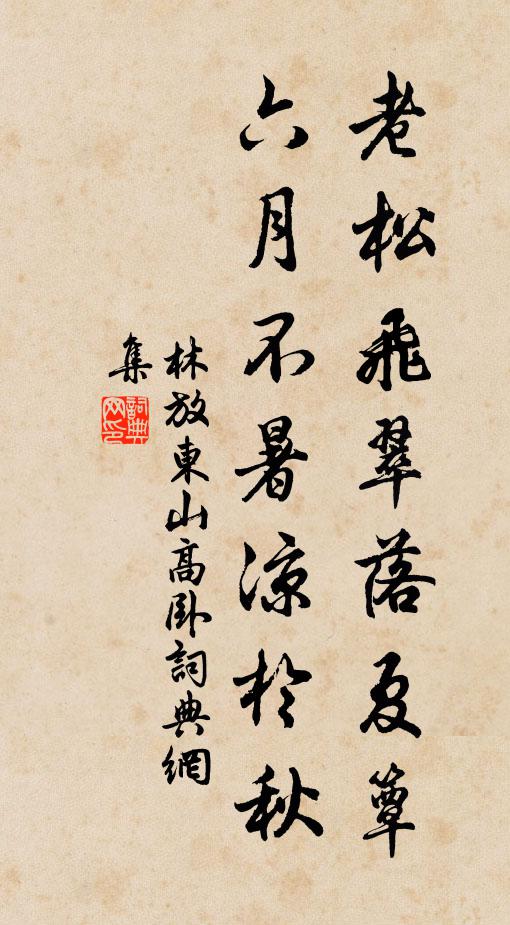 老松飛翠落夏簟
六月不暑涼於秋
林放東山高臥詞典網
集
詞典
网印